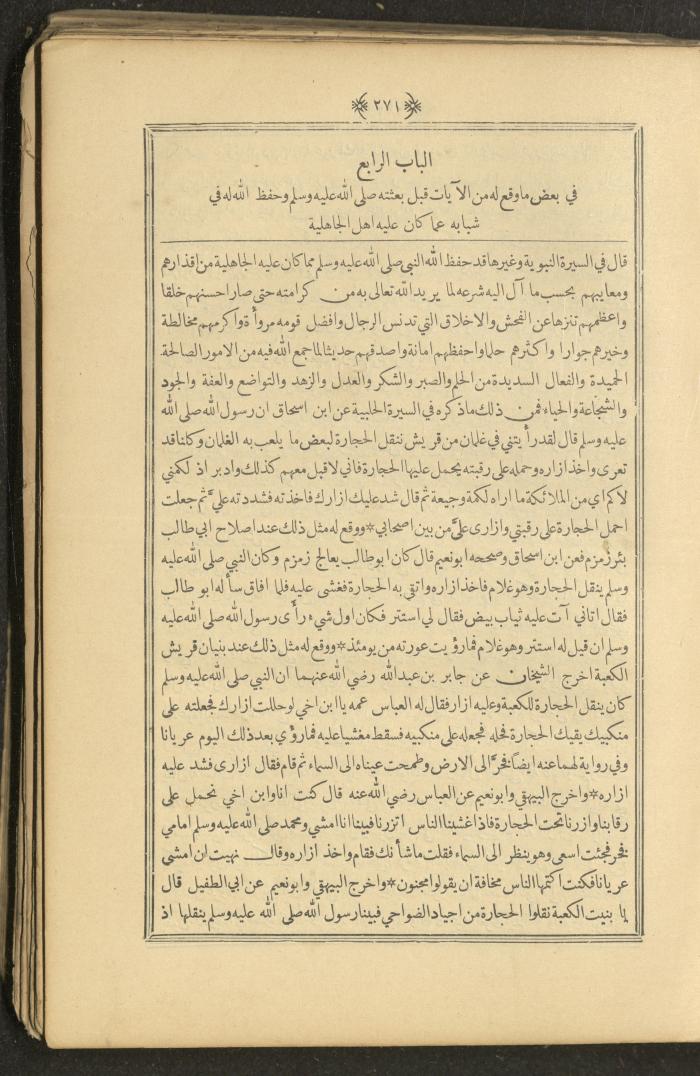 ٢٧١
الباب الرابع
في بعض ما وقع له من الآيات قبل بعثته صلى الله عليه وسلم وحفظ الله له في
شبابه عما كان عليه اهل الجاهلية
قال في السيرة النبوية وغيرها قد حفظ الله النبي صلى الله عليه وسلم مما كان عليه الجاهلية من اقذارهم
ومعايبهم بحسب ما آل اليه شرعه لما يريد الله تعالى به من كرامته حتى صار احسنهم خلقا
واعظمهم تنزها عن الفحش والاخلاق التي تدنس الرجال وافضل قومه مروأة واكرمهم مخالطة
وخيرهم جوارا واكثرهم حلما واحفظهم امانة واصدقهم حديثا لما جمع الله فيه من الامور الصالحة
الحميدة والفعال السديدة من الحلم والصبر والشكر والعدل والزهد والتواضع والعفة والجود
والشجاعة والحياء فمن ذلك ما ذكره في السيرة الحلبية عن ابن اسحاق ان رسول الله صلى الله
عليه وسلم قال لقد رأيتني في غلمان من قريش ننقل الحجارة لبعض ما يلعب به الغلمان وكلنا قد
تعرى واخذ ازاره وحمله على رقبته يحمل عليها الحجارة فاني لاقبل معهم كذلك وادبر اذ لكمني
لاكم اي من الملائكة ما اراه لكمة وجيعة ثم قال شد عليك ازارك فاخذته فشددته عليّ ثم جعلت
احمل الحجارة على رقبتي وازارى عليّ من بين اصحابي * ووقع له مثل ذلك عند اصلاح ابي طالب
بئر زمزم فعن ابن اسحاق وصححه ابو نعيم قال كان ابو طالب يعالج زمزم وكان النبي صلى الله عليه
وسلم ينقل الحجارة وهو غلام فاخذ ازاره واتقى به الحجارة فغشى عليه فلما افاق سأله ابو طالب
فقال اتاني آت عليه ثياب بيض فقال لي استتر فكان اول شيء رأى رسول الله صلى الله عليه
وسلم ان قيل له استتر وهو غلام فما رؤيت عورته من يومئذ * ووقع له مثل ذلك عند بنيان قريش
الكعبة اخرج الشيخان عن جابر بن عبدالله رضي الله عنهما ان النبي صلى الله عليه وسلم
كان ينقل الحجارة للكعبة وعليه ازار فقال له العباس عمه يا ابن اخي لو حللت ازارك فجعلته على
منكبيك يقيك الحجارة فحله فجعله على منكبيه فسقط مغشيا عليه فما رؤي بعد ذلك اليوم عريانا
وفي رواية لهما عنه ايضاً فخرّ الى الارض وطمحت عيناه الى السماء ثم قام فقال ازارى فشد عليه
ازاره * واخرج البيهقي وابو نعيم عن العباس رضي الله عنه قال كنت انا وابن اخي نحمل على
رقابنا وازرنا تحت الحجارة فاذا غشينا الناس اتزرنا فبينا انا امشي ومحمد صلى الله عليه وسلم امامي
فخر فجئت اسعى وهو ينظر الى السماء فقلت ما شأنك فقام واخذ ازاره وقال نهيت ان امشي
عريانا فكنت اكتمها الناس مخافة ان يقولوا مجنون * واخرج البيهقي وابو نعيم عن ابي الطفيل قال
لما بنيت الكعبة نقلوا الحجارة من اجياد الضواحي فبينا رسول الله صلى الله عليه وسلم ينقلها اذ